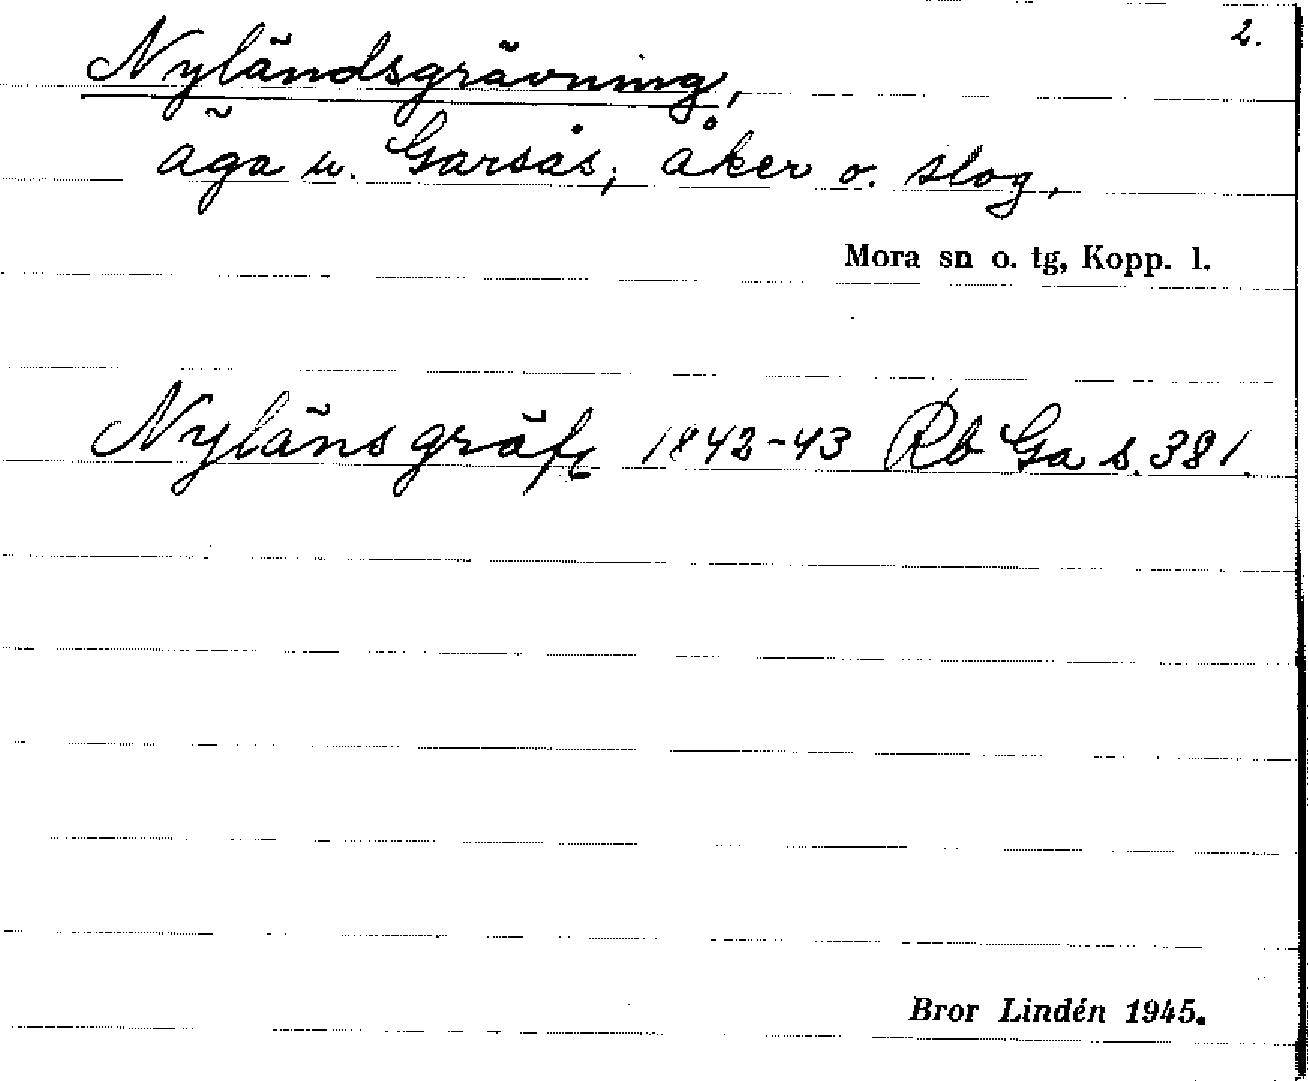 2.
Nyländsgrävning,
äga u. Garsås; åker o. slog,
Mora sn o. tg, Kopp. l.
Nyläns gräfn 1842-43 Rb Ga s. 381.
Bror Lindén 1945.